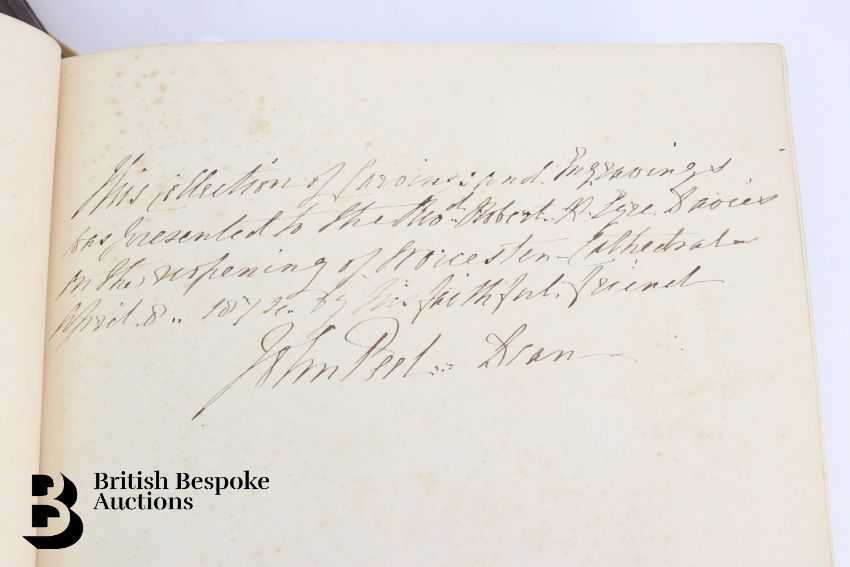 This Collection of Carvings and Engravings
was presented to the Revd. Robert H Eyre Davies
on the reopening of Worcester Cathedral
April. 8.. 1874. by his faithful friend
John Peel.. Dean
British Bespoke
Auctions